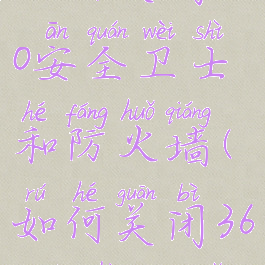 ān quán wèi shì
0安全卫士
hé fáng huǒ qiáng
和防火墙(
rú hé guān bì
如何关闭36